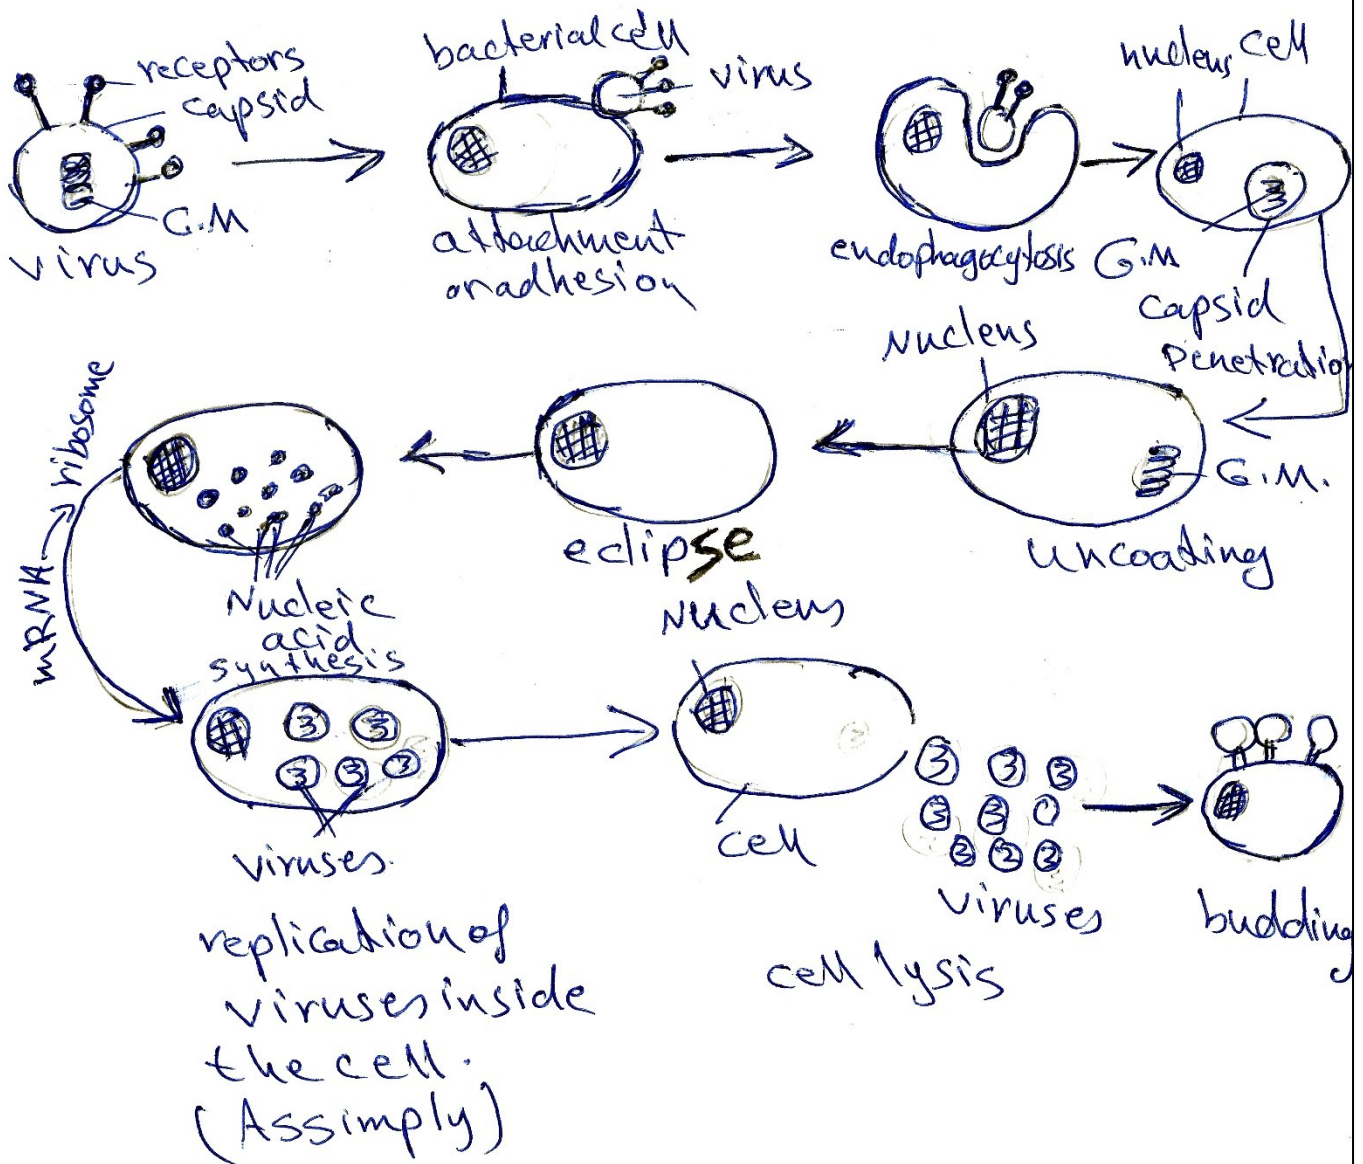 receptors
capsid
G.M
virus
bacterial cell
virus
attachment
or adhesion
endophagocytosis
nucleus
cell
G.M
capsid
Penetration
Nucleus
G.M.
uncoating
eclipse
Nucleic
acid
synthesis
mRNA → ribosome
viruses.
replication of
viruses inside
the cell.
(Assimply)
Nucleus
cell
viruses
cell lysis
budding